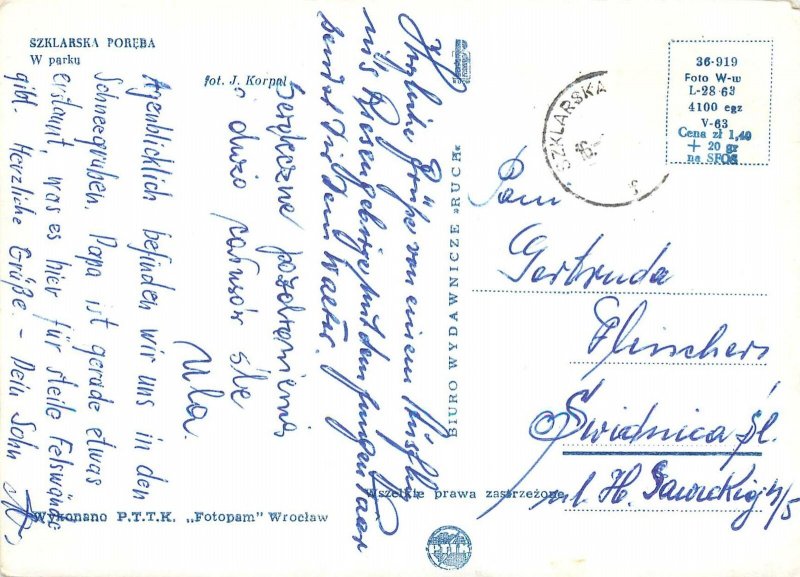 SZKLARSKA PORĘBA
W parku
fot. J. Korpal
Augenblicklich befinden wir uns in den
Schneegruben. Papa ist gerade etwas
erstaunt, was es hier für steile Felswände
gibt. Herzliche Grüße. - Dein Sohn
Serdeczne pozdrowienia
i dużo całusów śle
Ula.
Herzliche Grüße von einem Ausflug
ins Riesengebirge mit dem jungen Paar
sendet dir dein Walter.
BIURO WYDAWNICZE »RUCH«
SZKLARSKA
36-919
Foto W-w
L-28-63
4100 egz
V-63
Cena zł 1,40
+ 20 gr
na SFOS
Pani
Gertruda
Świdnica śl.
ul. H. Sawickiej 4/5
Wszelkie prawa zastrzeżone
Wykonano P.T.T.K. „Fotopam" Wrocław
PTTK